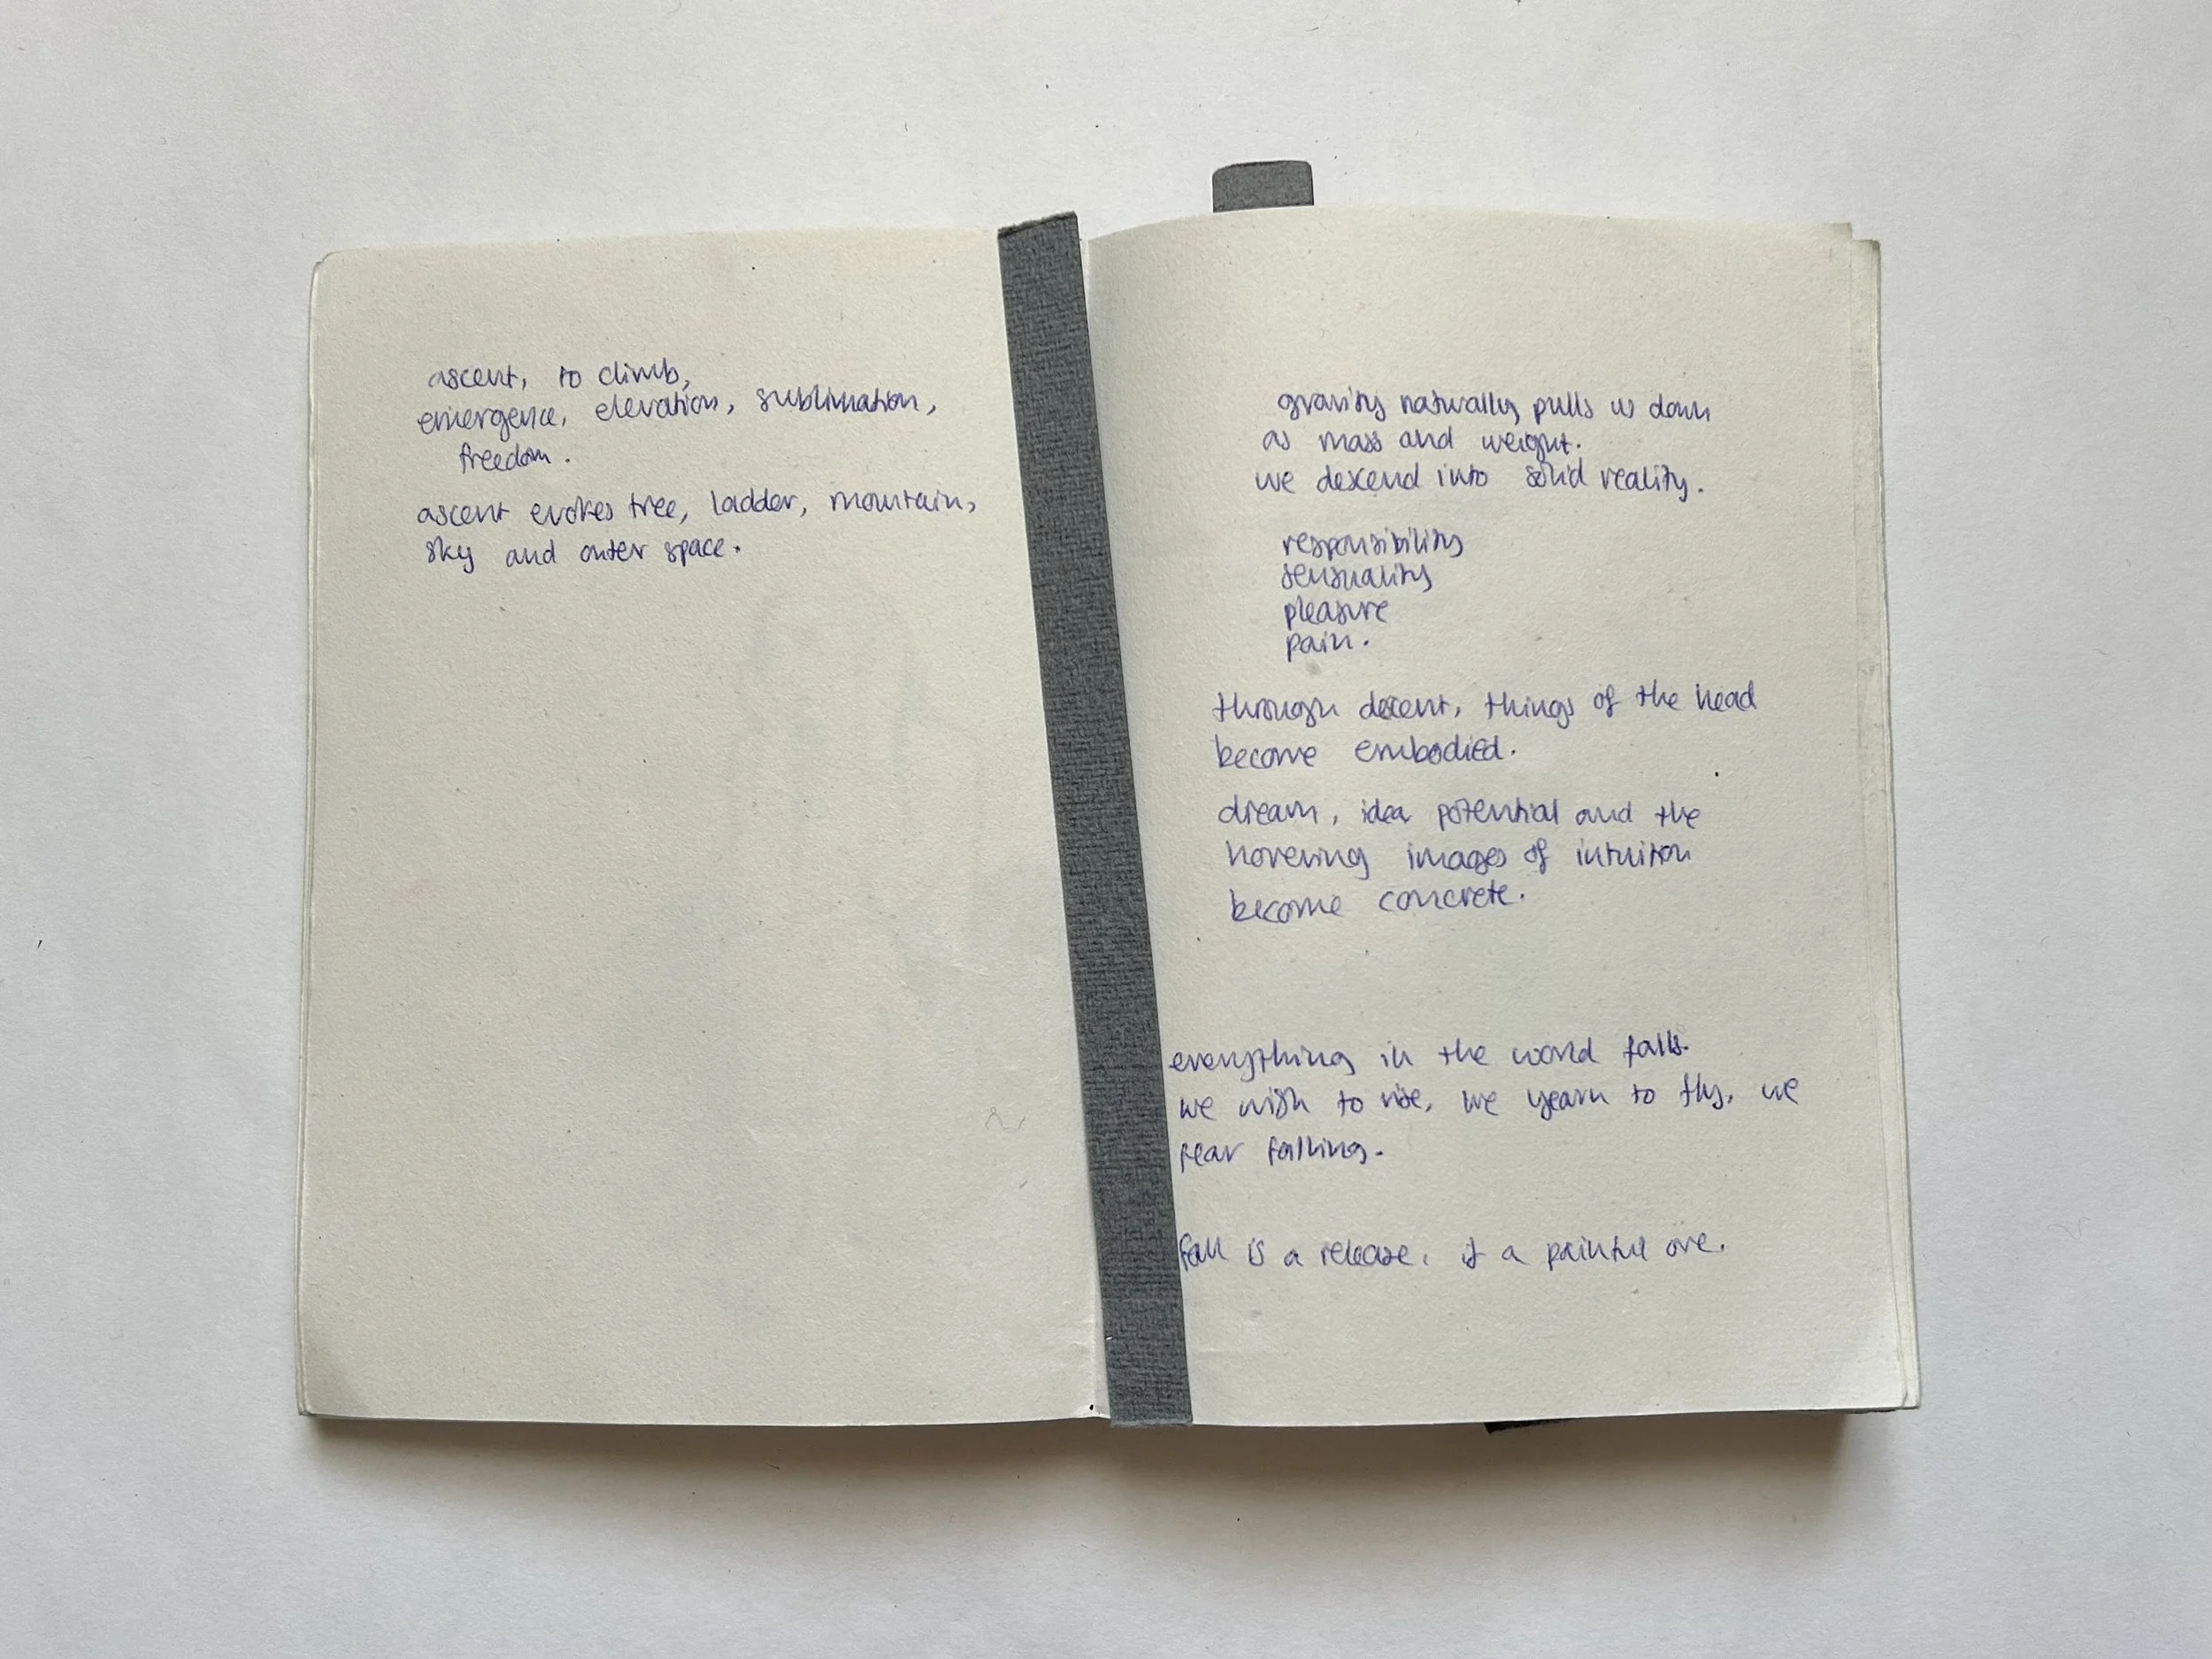 ascent, to climb,
emergence, elevation, sublimation,
freedom.
ascent evokes tree, ladder, mountain,
sky and outer space.
gravity naturally pulls us down
as mass and weight.
we descend into solid reality.
responsibility
sensuality
pleasure
pain.
through descent, things of the head
become embodied.
dream, idea potential and the
hovering images of intuition
become concrete.
everything in the world falls.
we wish to rise, we yearn to fly, we
fear falling.
fall is a release, if a painful one.